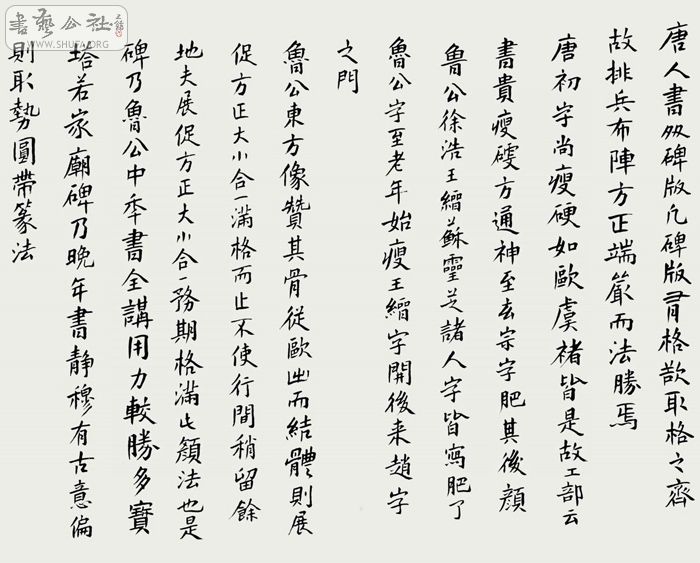 唐人書多碑版凡碑版有格欲取格之齊
故排兵布陣方正端嚴而法勝焉
唐初字尚瘦硬如歐虞褚皆是故工部云
書貴瘦硬方通神至玄宗字肥其後顏
魯公徐浩王縉蘇靈芝諸人字皆寫肥了
魯公字至老年始瘦王縉字開後来趙字
之門
魯公東方像贊其骨從歐出而結體則展
促方正大小合一滿格而止不使行間稍留餘
地夫展促方正大小合一務期格滿此顏法也是
碑乃魯公中年書全講用力較勝多寶
塔若家廟碑乃晚年書静穆有古意偏
則取勢圓帶篆法
書藝公社
WWW.SHUFA.ORG